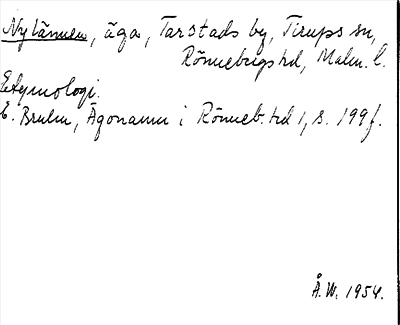 Nytännen, äga, Tarstads by, Tirups sn,
Rönnebergs hd, Malm. l.
Etymologi.
E. Bruhn, Ägonamn i Rönneb. hd 1, s. 199 f.
Å.W. 1954.